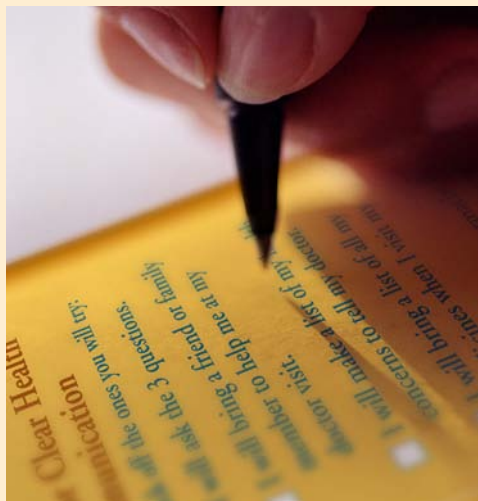 Clear Health
off the ones you will try:
will ask the 3 questions.
I will bring a friend or family
member to help me at my
doctor visit.
I will make a list of my
concerns to tell my doctor.
I will bring a list of all my
when I visit my